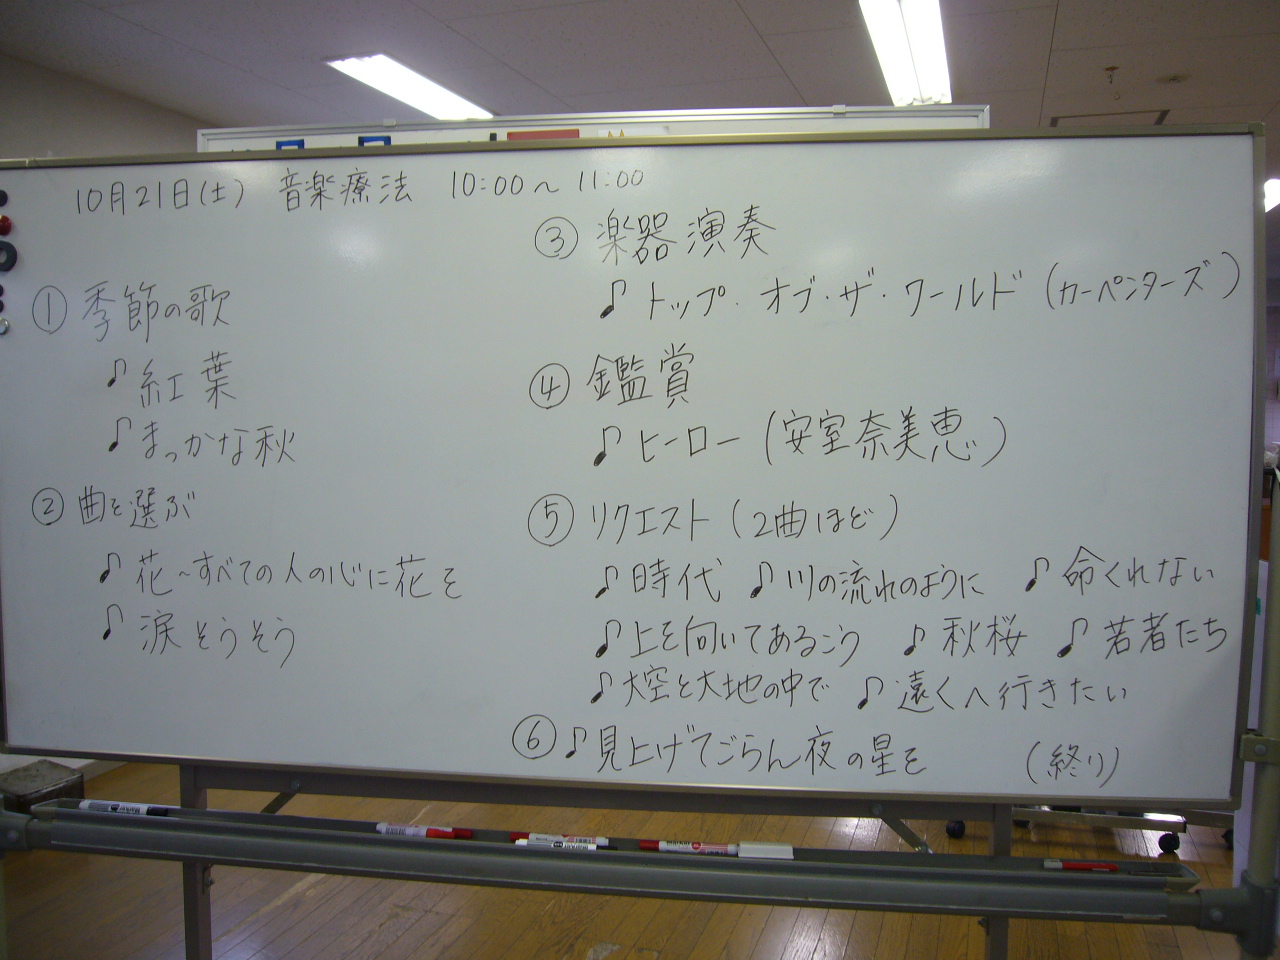 10月21日(土) 音楽療法 10:00〜11:00
① 季節の歌
♪紅葉
♪まっかな秋
② 曲を選ぶ
♪花〜すべての人の心に花を
♪涙そうそう
③ 楽器演奏
♪トップ・オブ・ザ・ワールド(カーペンターズ)
④ 鑑賞
♪ヒーロー(安室奈美恵)
⑤ リクエスト(2曲ほど)
♪時代 ♪川の流れのように ♪命くれない
♪上を向いてあるこう ♪秋桜 ♪若者たち
♪大空と大地の中で ♪遠くへ行きたい
⑥ ♪見上げてごらん夜の星を (終り)